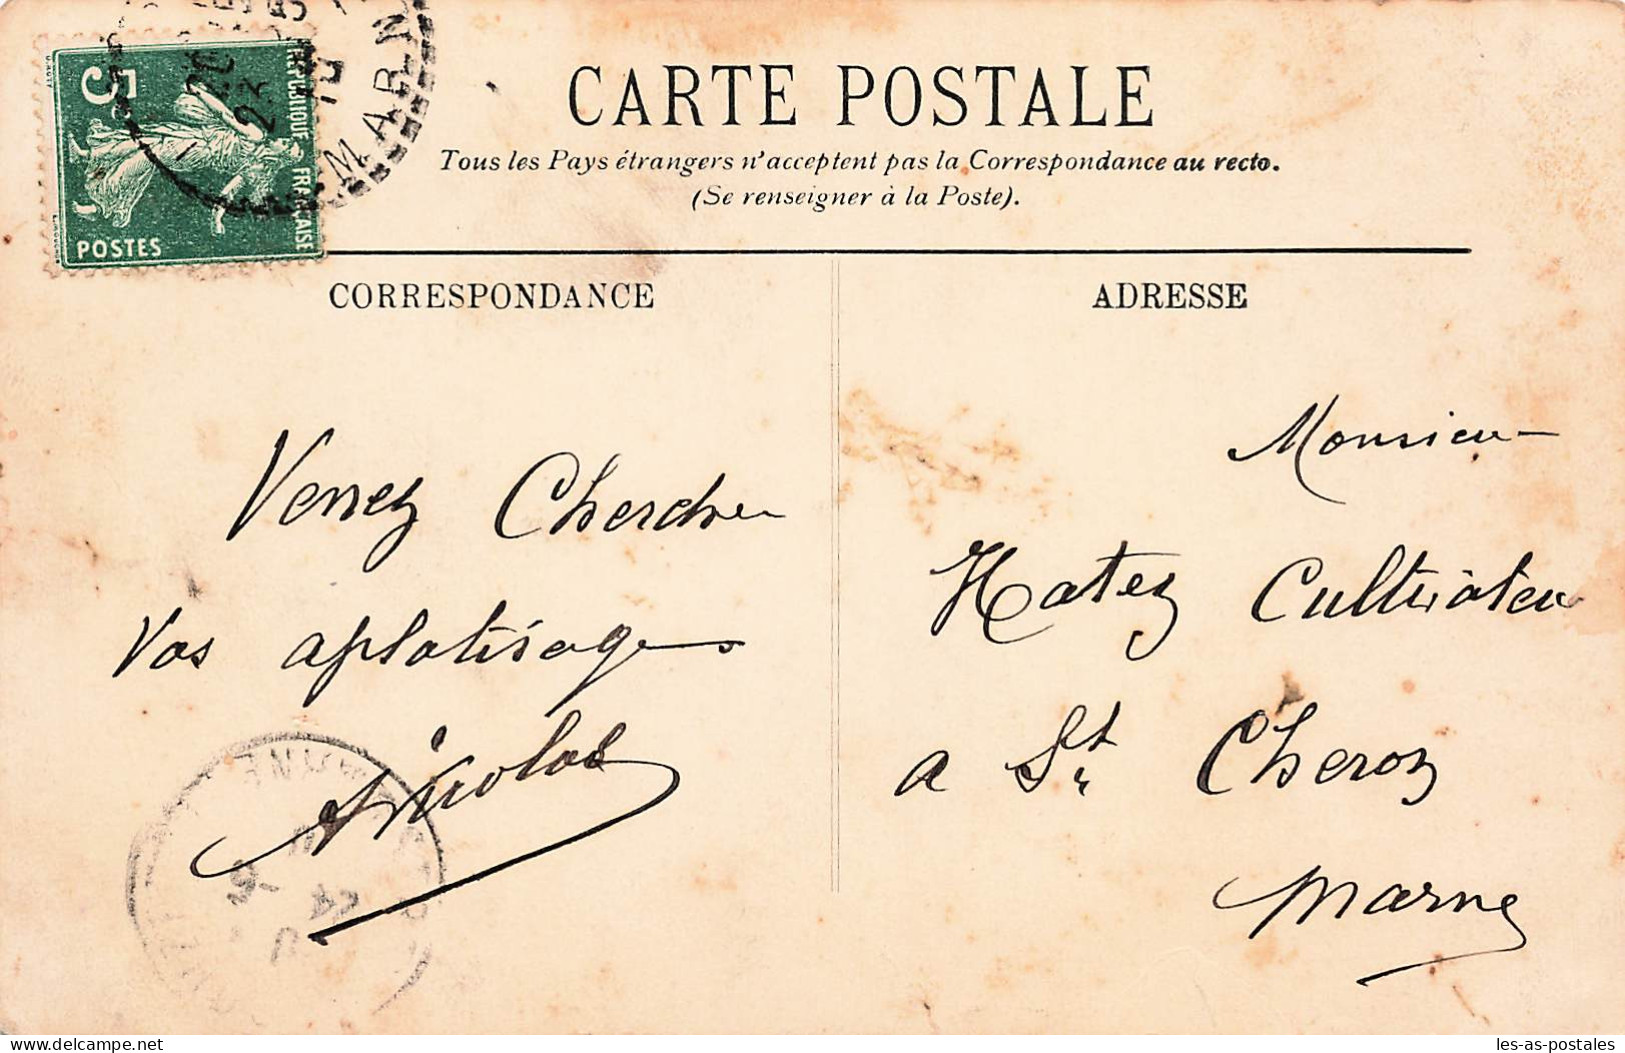 CARTE POSTALE
Tous les Pays étrangers n'acceptent pas la Correspondance au recto.
(Se renseigner à la Poste).
5
REPUBLIQUE FRANÇAISE
POSTES
23
MARN
CORRESPONDANCE
ADRESSE
Venez Chercher
Vos aplatisages
Nicolas
Monsieur
Hatez Cultivateu
a St Cheron
Marne
MARNE
Delcampe.net
les-as-postales